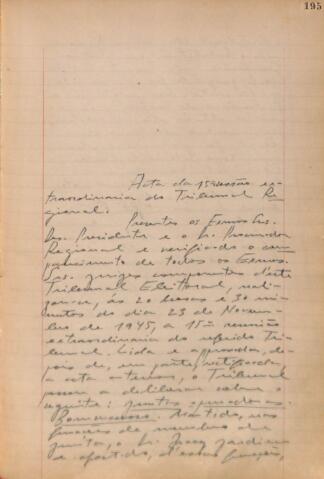 195
Acta da 15ª sessão ex-
traordinaria do Tribunal Re-
gional.
Presentes os Exmos Srs.
Des. Presidente e o Dr. Procurador
Regional e verificado o com-
parecimento de todos os Exmos.
Srs. juizes componentes deste
Tribunal Eleitoral, reali-
zou-se, ás 20 horas e 30 mi-
nutos do dia 23 de Novem-
bro de 1945, a 15ª reunião
extraordinaria do referido Tri-
bunal. Lida e approvada, de-
pois de, em parte, rectificada,
a acta anterior, o Tribunal
passou a deliberar sobre o
seguinte: Juntas apuradoras.
Mantido, nas
funções de membro de
junta, o Dr. Jardim
e afastado, d'essas funções,